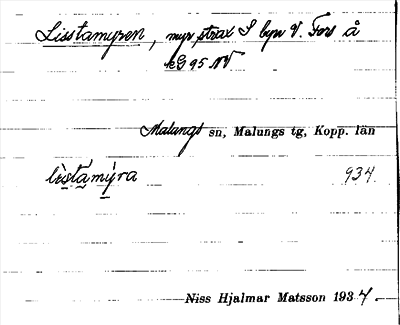 Lisstamyren, myr strax S byn V. Fors å
kG 95 NV
Malungs sn, Malungs tg, Kopp. län
lìstamýra 934.
Niss Hjalmar Matsson 1934.